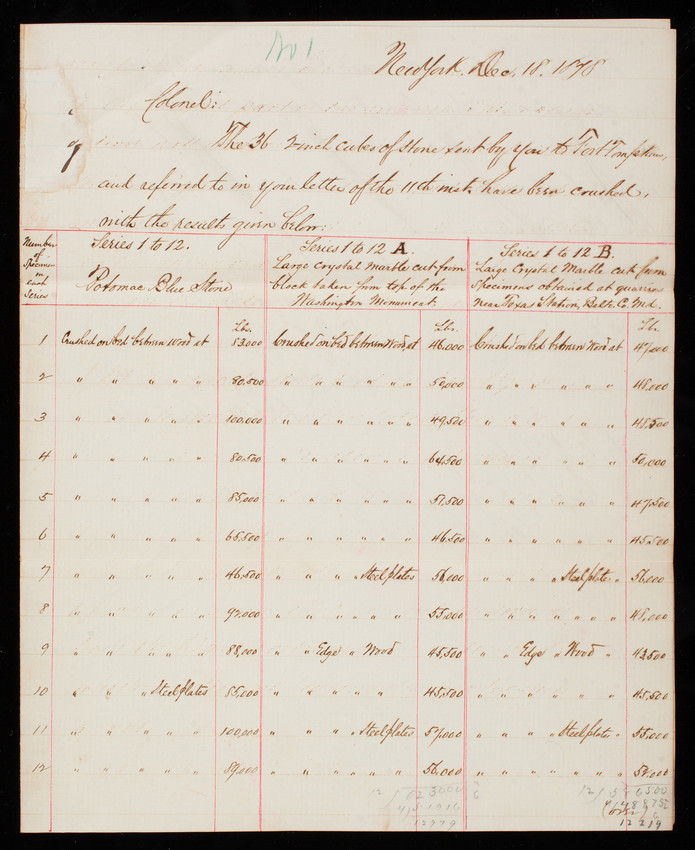 No 1
New York. Dec. 18. 1878
Colonel:
The 36 2-inch cubes of stone sent by you to Fort Tompkins,
and referred to in your letter of the 11th inst. have been crushed,
with the results given below:
Number of Specimen in each Series
Series 1 to 12. Potomac Blue Stone
Series 1 to 12 A. Large Crystal Marble cut from block taken from top of the Washington Monument
Series 1 to 12 B. Large Crystal Marble cut from specimens obtained at quarries near Texas Station, Balt. Co. Md.
Lbs. Lbs. Lbs.
1 Crushed on bed between wood at 83,000 Crushed on bed between wood, at 46,000 Crushed on bed between wood at 47,000
2 " " " " " 80,500 " " " " " " 50,000 " " " " " " 48,000
3 " " " " " 100,000 " " " " " " 49,500 " " " " " " 48,500
4 " " " " " 80,500 " " " " " " 64,500 " " " " " " 50,000
5 " " " " " 85,000 " " " " " " 51,500 " " " " " " 47,500
6 " " " " " 65,500 " " " " " " 46,500 " " " " " " 45,500
7 " " " " " 46,500 " " " " Steel plates 56,000 " " " " Steel plates " 56,000
8 " " " " " 92,000 " " " " " " 55,000 " " " " " " 48,000
9 " " " " " 88,000 " " Edge " Wood 45,500 " " Edge " Wood " 43,500
10 " " " " Steel plates 85,000 " " " " " 45,500 " " " " " " 45,500
11 " " " " " 100,000 " " " " Steel plates 57,000 " " " " Steel plates " 55,000
12 " " " " " 89,000 " " " " " 56,000 " " " " " " 52,000
(over)
12979
12219